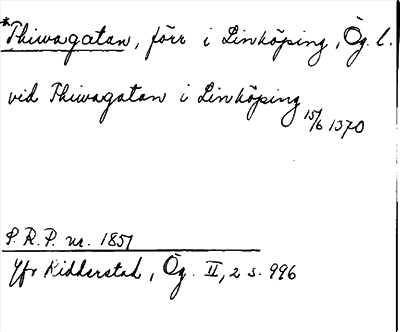 *Thiwagatan, förr i Linköping, Ög. l.
vid Thiwagatan i Linköping 15/6 1370
S.R.P. nr. 1851
Jfr Ridderstad, Ög. II, 2 s. 996